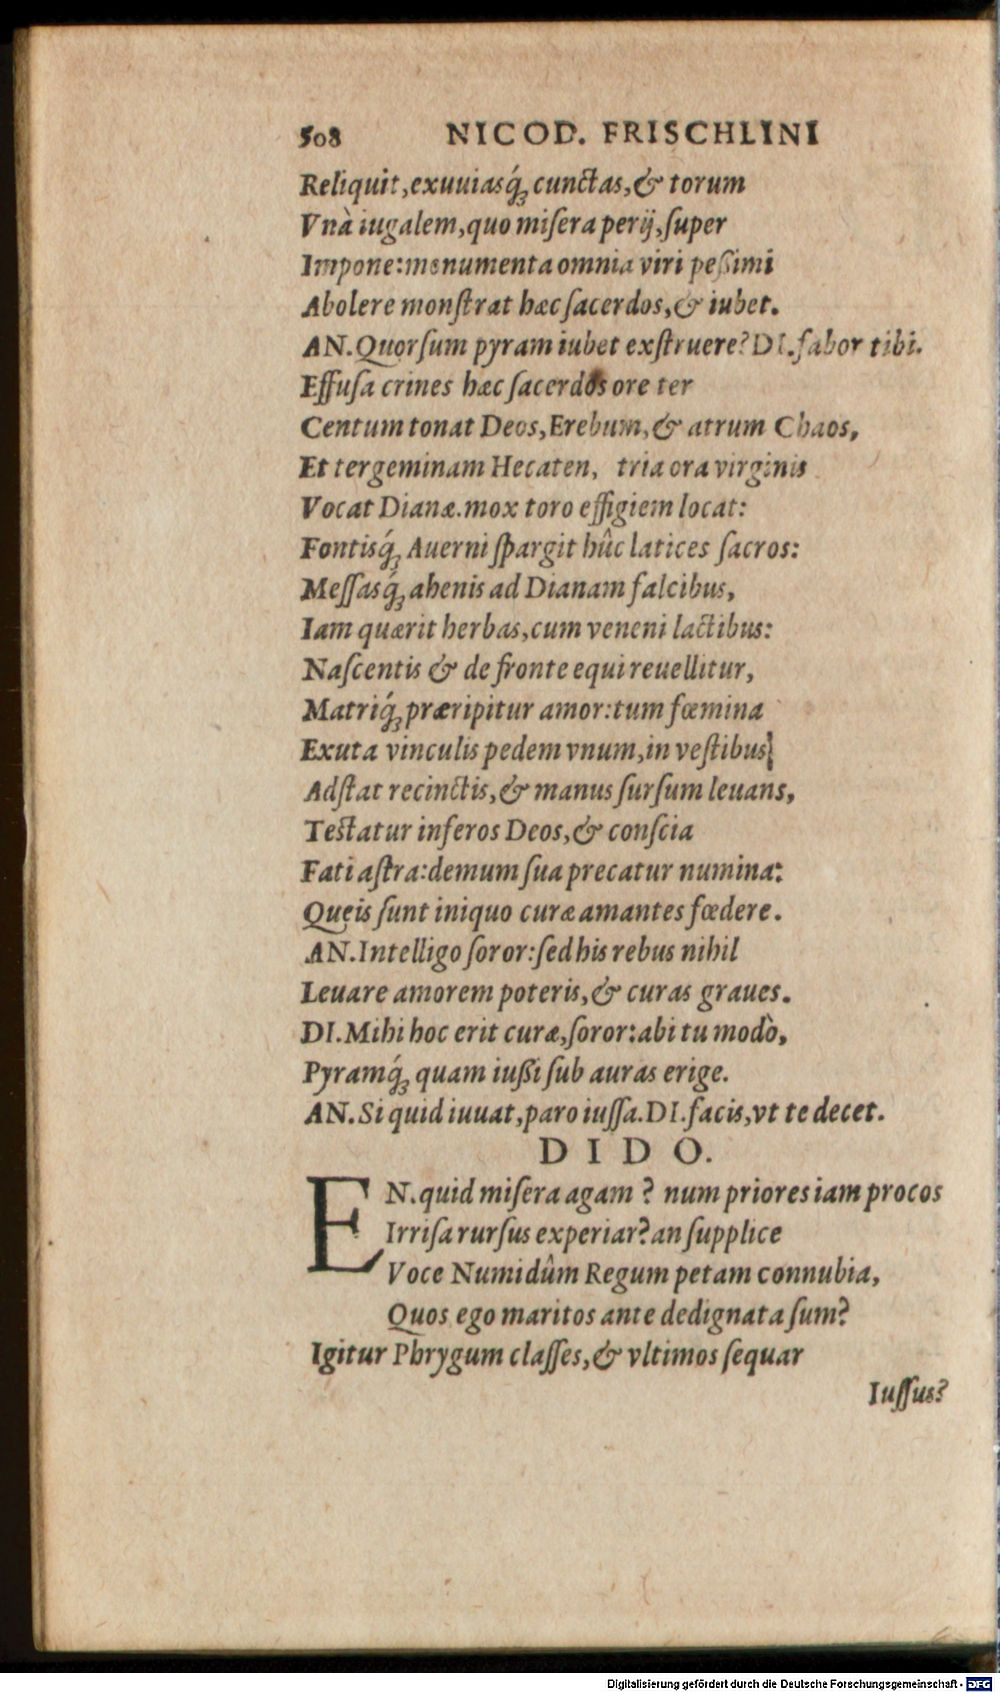 508 NICOD. FRISCHLINI
Reliquit, exuuiasq́ꝫ cunctas, & torum
Vnà iugalem, quo miſera perij, ſuper
Impone: monumenta omnia viri peßimi
Abolere monſtrat hæc ſacerdos, & iubet.
AN. Quorſum pyram iubet exſtruere? DI. fabor tibi.
Effuſa crines hæc ſacerdos ore ter
Centum tonat Deos, Erebum, & atrum Chaos,
Et tergeminam Hecaten, tria ora virginis
Vocat Dianæ. mox toro effigiem locat:
Fontisq́ꝫ Auerni ſpargit hûc latices ſacros:
Meſſasq́ꝫ ahenis ad Dianam falcibus,
Iam quærit herbas, cum veneni lactibus:
Naſcentis & de fronte equi reuellitur,
Matriq́ꝫ præripitur amor: tum fœmina
Exuta vinculis pedem vnum, in veſtibus
Adſtat recinctis, & manus ſurſum leuans,
Teſtatur inferos Deos, & conſcia
Fati aſtra: demum ſua precatur numina:
Queis ſunt iniquo curæ amantes fœdere.
AN. Intelligo ſoror: ſed his rebus nihil
Leuare amorem poteris, & curas graues.
DI. Mihi hoc erit curæ, ſoror: abi tu modò,
Pyramq́ꝫ quam iußi ſub auras erige.
AN. Si quid iuuat, paro iuſſa. DI. facis, vt te decet.
DIDO.
EN. quid miſera agam? num priores iam procos
Irriſa rurſus experiar? an ſupplice
Voce Numidûm Regum petam connubia,
Quos ego maritos ante dedignata ſum?
Igitur Phrygum claſſes, & vltimos ſequar
Iuſſus?
Digitalisierung gefördert durch die Deutsche Forschungsgemeinschaft - DFG